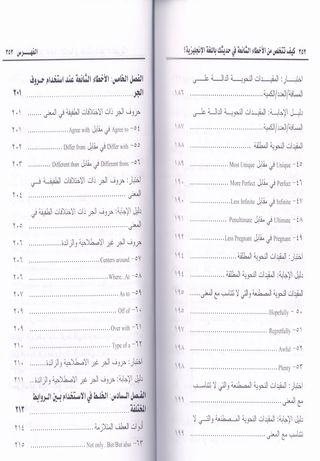 ٢٥٢ كيف تتخلص من الأخطاء الشائعة في حديثك باللغة الإنجليزية؟
اختبار: المقيدات النحوية الدالة على
المسافة/العدد/الكمية ١٨٦
دليل الإجابة: المقيدات النحوية الدالة على
المسافة/العدد/الكمية ١٨٧
المقيدات النحوية المطلقة ١٨٩
٤٥- Unique في مقابل Most Unique ١٨٩
٤٦- Perfect في مقابل More Perfect ١٩٠
٤٧- Infinite في مقابل Less Infinite ١٩٠
٤٨- Ultimate في مقابل Penultimate ١٩١
٤٩- Pregnant في مقابل Less Pregnant ١٩٢
اختبار: المقيدات النحوية المطلقة ١٩٣
دليل الإجابة: المقيدات النحوية المطلقة ١٩٤
المقيدات المصطنعة والتي لا تتناسب مع المعنى ١٩٥
٥٠- Hopefully ١٩٥
٥١- Regretfully
٥٢- Awful
٥٣- Plenty
اختبار: المقيدات المصطنعة والتي لا تتناسب
مع المعنى
دليل الإجابة: المقيدات المصطنعة والتي لا
تتناسب مع المعنى ١٩٩
الفهرس ٢٥٣
الفصل الخامس: الأخطاء الشائعة عند استخدام حروف
الجر ٢٠١
حروف الجر ذات الاختلافات الطفيفة في المعنى ٢٠١
٥٤- Agree to في مقابل Agree with ٢٠١
٥٥- Differ with في مقابل Differ from ٢٠٢
٥٦- Different from في مقابل Different than ٢٠٣
اختبار: حروف الجر ذات الاختلافات الطفيفة في
المعنى ٢٠٤
دليل الإجابة: حروف الجر ذات الاختلافات الطفيفة في
المعنى ٢٠٥
حروف الجر غير الاصطلاحية والزائدة ٢٠٦
٥٧- Centers around ٢٠٦
٥٨- Where.. At ٢٠٦
٥٩- As to ٢٠٧
٦٠- Off of ٢٠٨
٦١- Over with ٢٠٨
٦٢- Type of a ٢٠٩
اختبار: حروف الجر غير الاصطلاحية والزائدة ٢١٠
دليل الإجابة: حروف الجر غير الاصطلاحية والزائدة ٢١١
الفصل السادس: الخلط في الاستخدام بين الروابط
المختلفة ٢١٣
أدوات العطف المتلازمة ٢١٤
٦٣- Not only.. But/But also ٢١٥